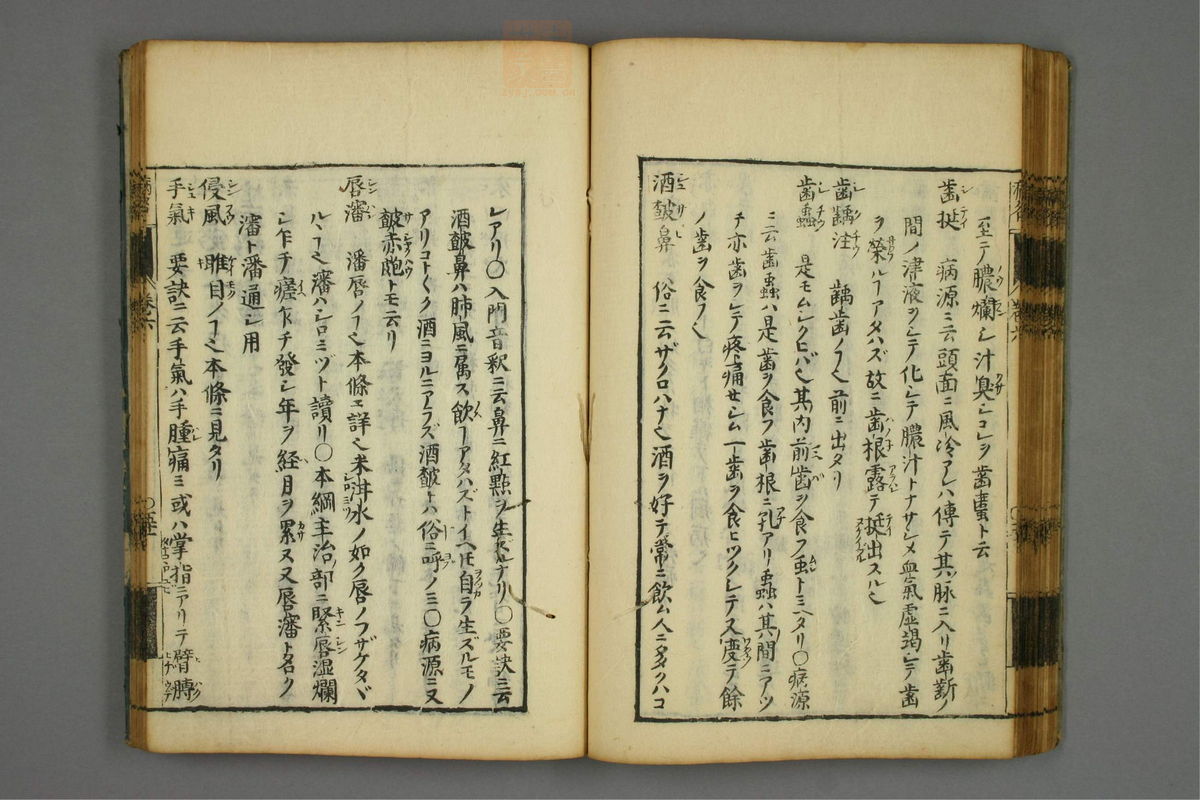 至テ膿爛シ汁臭シコレヲ歯䘌ト云
歯挺 病源ニ云頭面ニ風冷アレハ傳テ其脉ニ入リ歯齗ノ
間ノ津液ヲシテ化シテ膿汁トナサシメ血氣虚竭シテ歯
ヲ榮ルヿアタハズ故ニ歯根露テ挺出スル也
歯齲注 齲歯ノヿ也前ニ出タリ
歯蟲 是モムシクヒバ也其内前歯ヲ食フ虫ト ミヘタリ〇病源
ニ云歯蟲ハ是歯ヲ食フ歯根ニ孔アリ蟲ハ其間ニアツ
テ亦歯ヲシテ疼痛セシム一歯ヲ食ヒツクシテ又度テ餘
ノ歯ヲ食フ也
酒皶鼻 俗ニ云ザクロハナ也酒ヲ好テ常ニ飲ム人ニ多クハコ
レアリ〇入門音釈ニ云鼻ニ紅點ヲ生ズルナリ〇要訣ニ云
酒皶鼻ハ肺風ニ属ス飲ヿアタハズトイヘ𪜈自ラ生ズルモノ
アリコトゴトク酒ニヨルニアラズ酒皶トハ俗ニ呼ノミ〇病源ニ又
皶赤皰トモ云リ
唇瀋 瀋唇ノヿ也本條ニ詳也米泔水ノ如ク唇ノフザケタヾ
ルヽヿ也瀋ハシロミヅト讀リ〇本綱主治ノ部ニ緊唇湿爛
シ乍チ瘥乍チ發シ年ヲ経月ヲ累ス又唇瀋ト名ク
瀋ト瀋通シ用
侵風 雎目ノヿ也本條ニ見タリ
手氣 要訣ニ云手氣ハ手腫痛ミ或ハ掌指ニアリテ臂膊